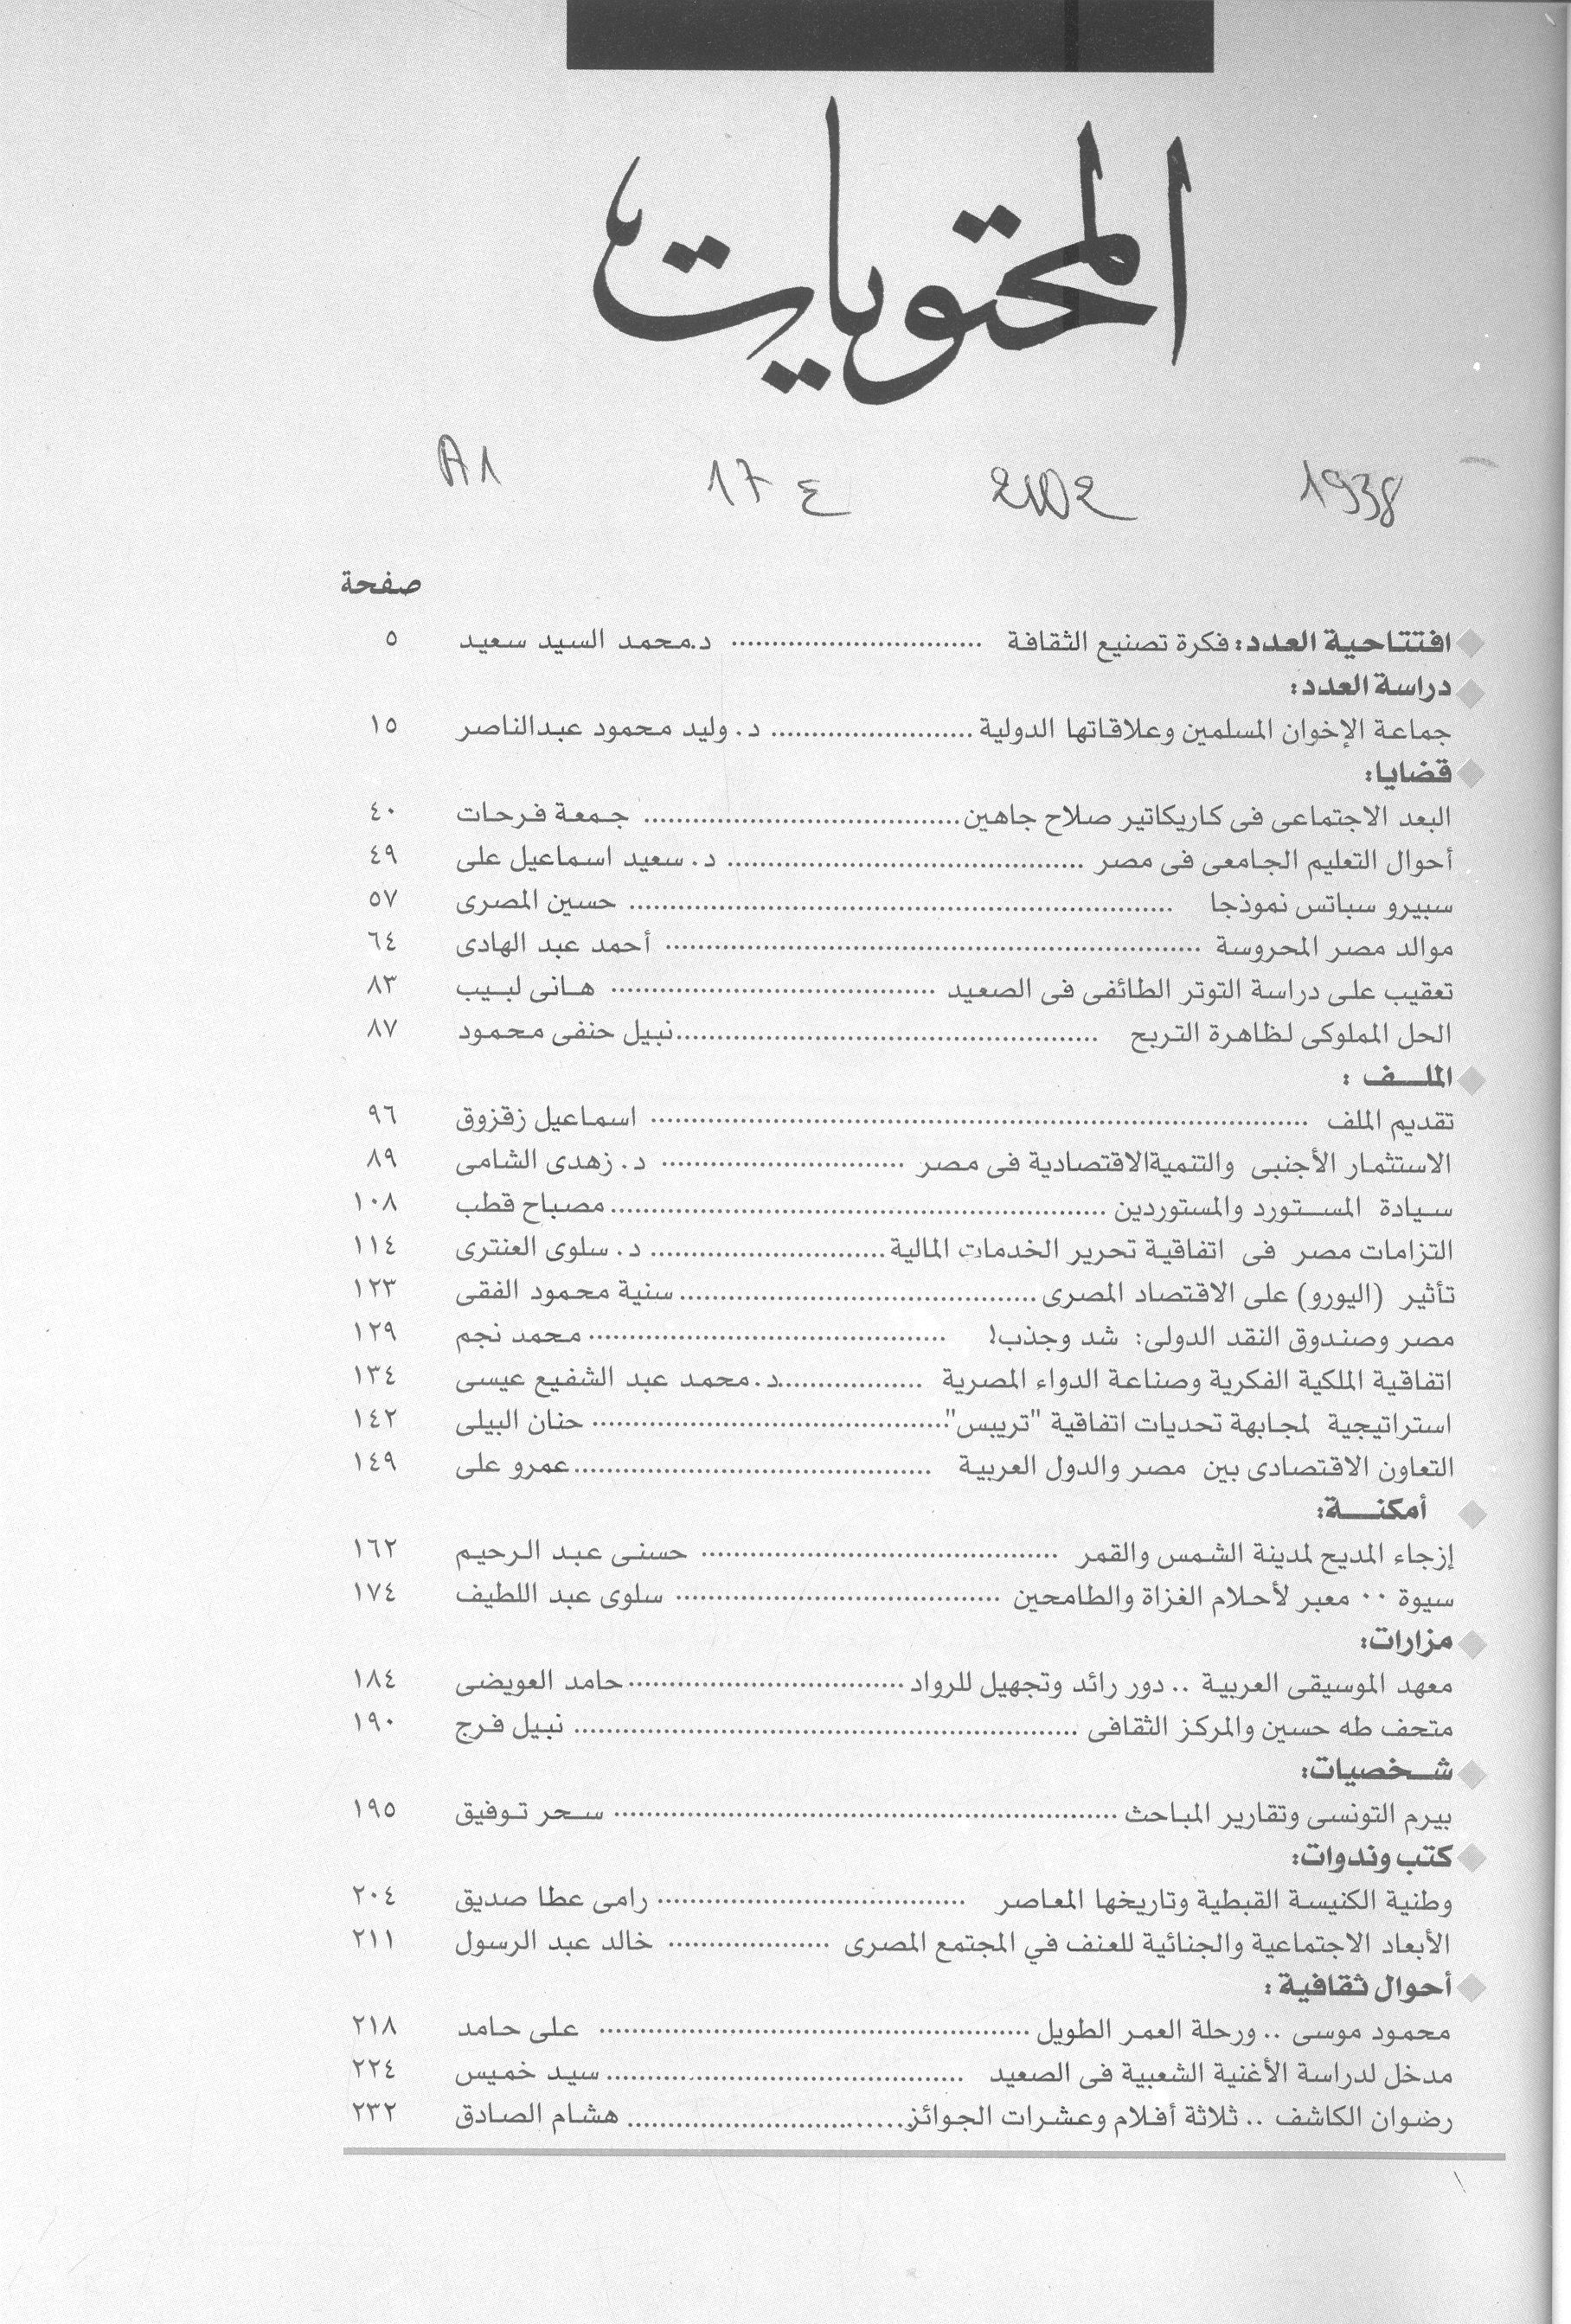 المحتويات
1938 2002 ٤ 17 A1
صفحة
افتتاحية العدد: فكرة تصنيع الثقافة .............................. د.محمد السيد سعيد ٥
دراسة العدد:
جماعة الإخوان المسلمين وعلاقاتها الدولية ........................ د. وليد محمود عبدالناصر ١٥
قضايا:
البعد الاجتماعى فى كاريكاتير صلاح جاهين ...................................... جمعة فرحات ٤٠
أحوال التعليم الجامعى فى مصر .......................................... د. سعيد اسماعيل على ٤٩
سبيرو سباتس نموذجا ................................................................ حسين المصرى ٥٧
موالد مصر المحروسة ................................................................ أحمد عبد الهادى ٦٤
تعقيب على دراسة التوتر الطائفى فى الصعيد ...................................... هانى لبيب ٨٣
الحل المملوكى لظاهرة التربح .................................................. نبيل حنفى محمود ٨٧
الملف :
تقديم الملف .............................................................................. اسماعيل زقزوق ٩٦
الاستثمار الأجنبى والتنميةالاقتصادية فى مصر ............................. د. زهدى الشامى ٨٩
سيادة المستورد والمستوردين .......................................................... مصباح قطب ١٠٨
التزامات مصر فى اتفاقية تحرير الخدمات المالية ............................ د. سلوى العنترى ١١٤
تأثير (اليورو) على الاقتصاد المصرى .......................................... سنية محمود الفقى ١٢٣
مصر وصندوق النقد الدولى: شد وجذب! .......................................... محمد نجم ١٢٩
اتفاقية الملكية الفكرية وصناعة الدواء المصرية ................. د. محمد عبد الشفيع عيسى ١٣٤
استراتيجية لمجابهة تحديات اتفاقية "تريبس" .......................................... حنان البيلى ١٤٢
التعاون الاقتصادى بين مصر والدول العربية .......................................... عمرو على ١٤٩
أمكنة:
إزجاء المديح لمدينة الشمس والقمر .......................................... حسنى عبد الرحيم ١٦٢
سيوة .. معبر لأحلام الغزاة والطامحين ...................................... سلوى عبد اللطيف ١٧٤
مزارات:
معهد الموسيقى العربية .. دور رائد وتجهيل للرواد ................................. حامد العويضى ١٨٤
متحف طه حسين والمركز الثقافى .......................................................... نبيل فرج ١٩٠
شخصيات:
بيرم التونسى وتقارير المباحث .......................................................... سحر توفيق ١٩٥
كتب وندوات:
وطنية الكنيسة القبطية وتاريخها المعاصر .................................... رامى عطا صديق ٢٠٤
الأبعاد الاجتماعية والجنائية للعنف في المجتمع المصرى ................... خالد عبد الرسول ٢١١
أحوال ثقافية :
محمود موسى .. ورحلة العمر الطويل .................................................. على حامد ٢١٨
مدخل لدراسة الأغنية الشعبية فى الصعيد .......................................... سيد خميس ٢٢٤
رضوان الكاشف .. ثلاثة أفلام وعشرات الجوائز .................................. هشام الصادق ٢٣٢